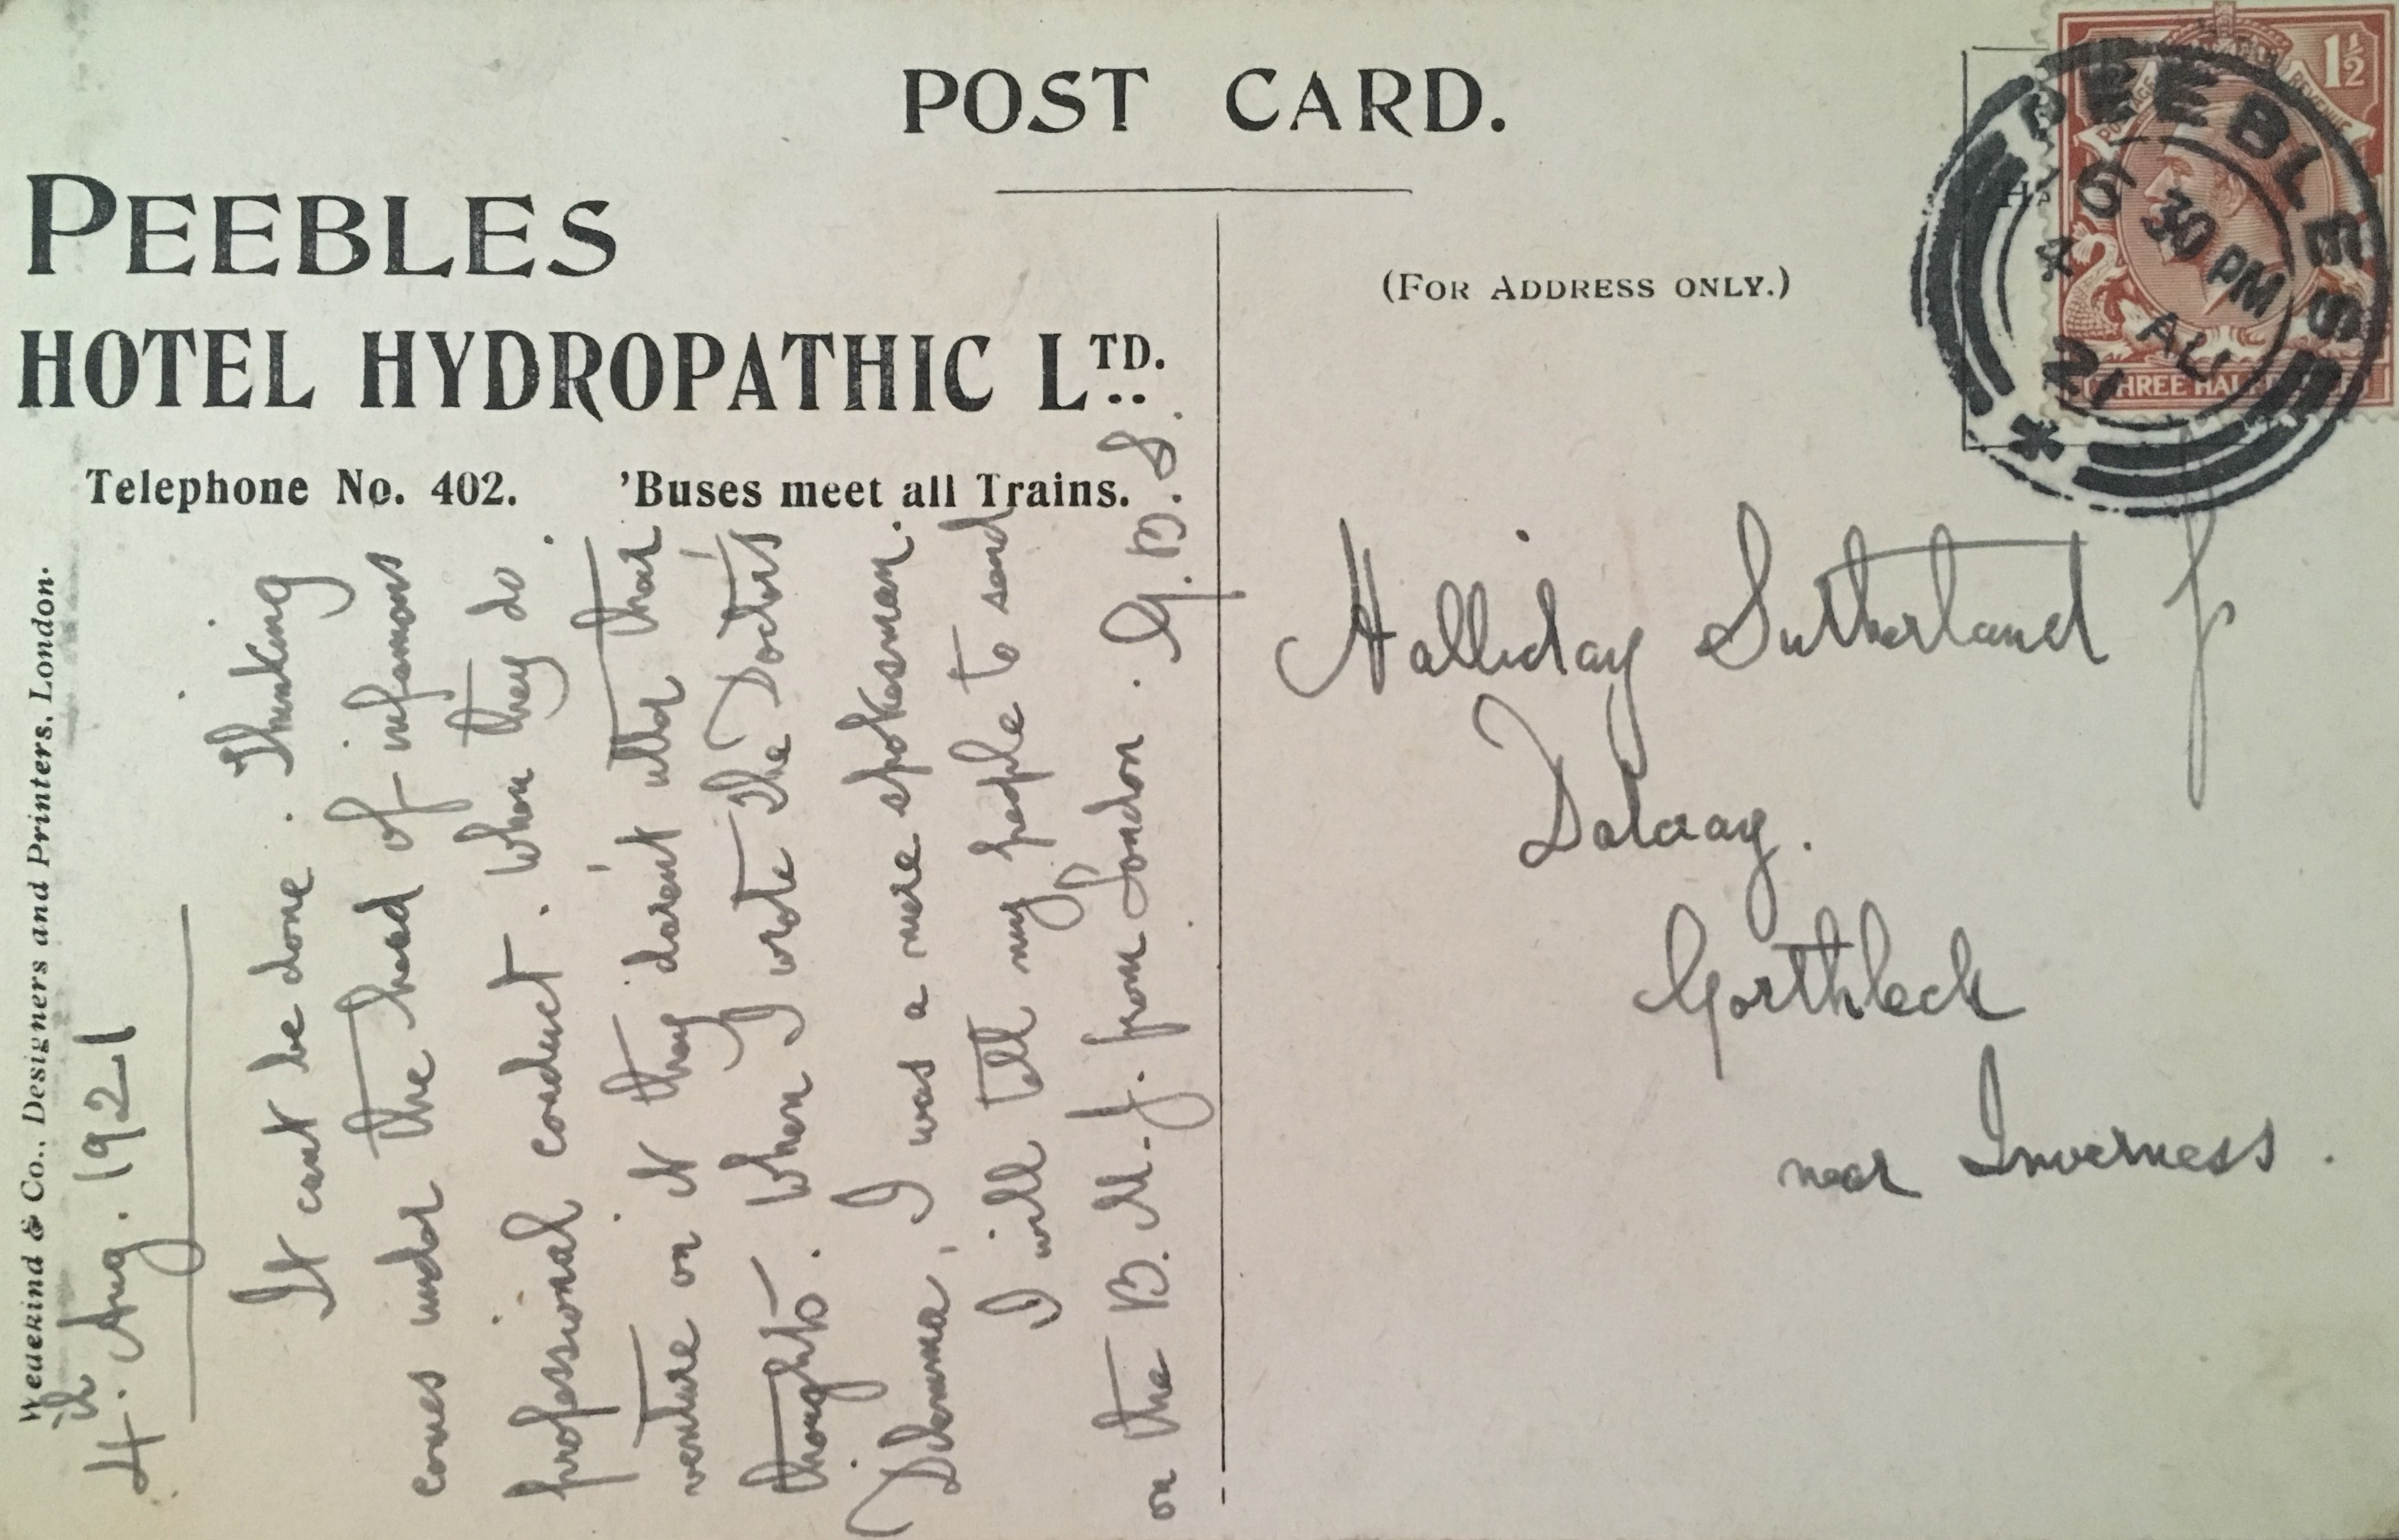 POST CARD.
PEEBLES
HOTEL HYDROPATHIC LTD.
Telephone No. 402. 'Buses meet all Trains.
Wedekind & Co., Designers and Printers, London.
4th. Aug. 1921
It cant be done. Thinking
comes under the head of infamous
professional conduct. When they do
venture on it they darent utter their
thoughts. When I wrote The Doctor's
Dilemma, I was a mere spokesman.
I will tell my people to send
on the B.M.J. from London. G.B.S.
(FOR ADDRESS ONLY.)
Halliday Sutherland
Dalcray.
Gorthleck
near Inverness.
PEEBLES
6 30 PM
4 AU
21
1½
POSTAGE REVENUE
THREE HALFPENCE